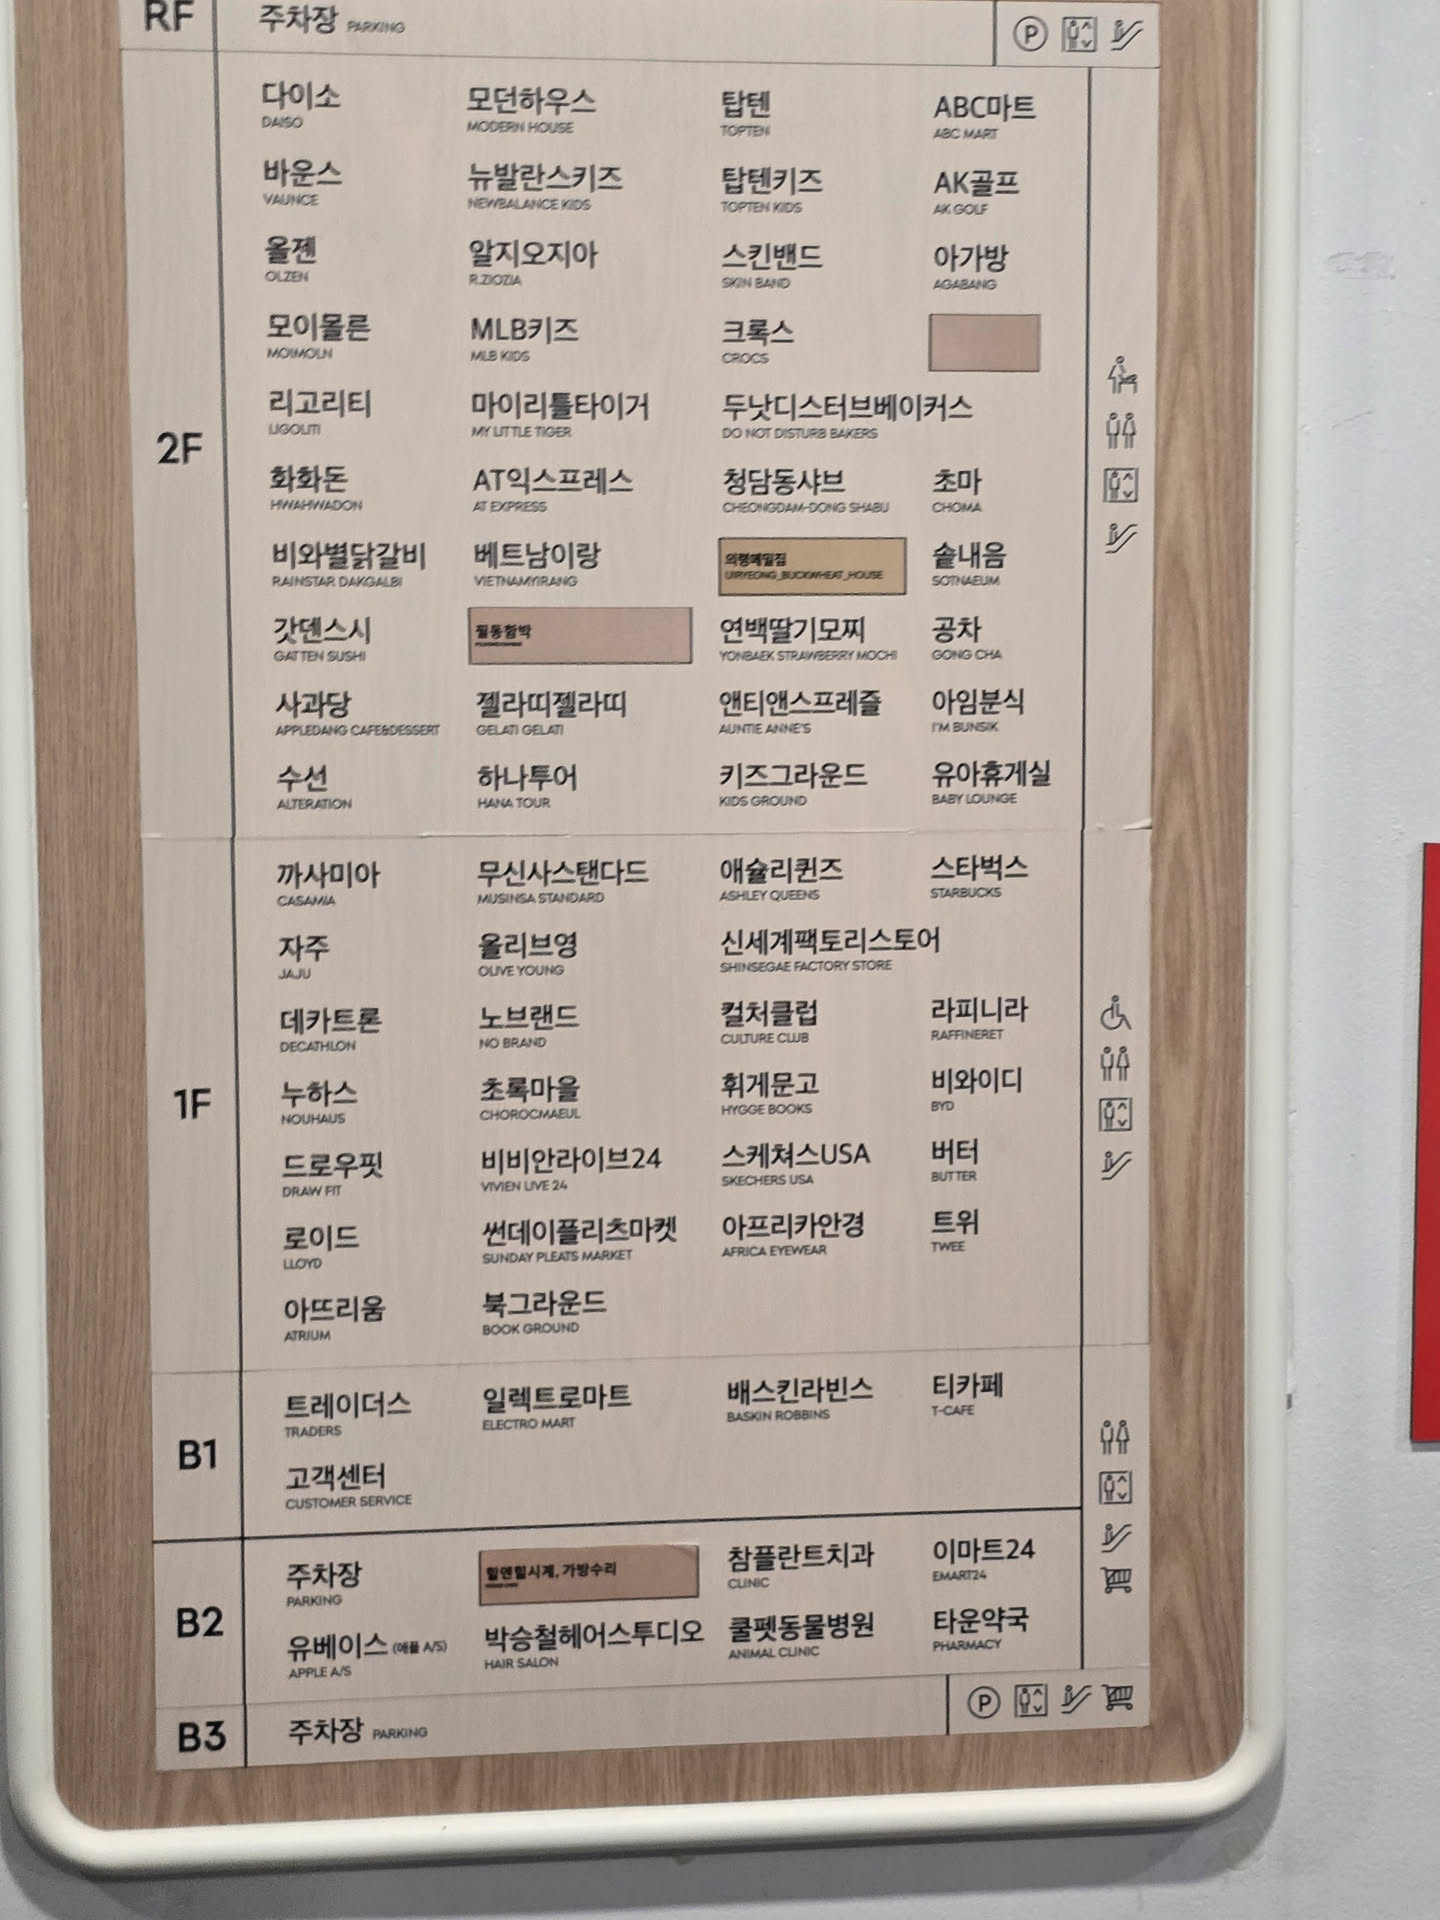 RF
주차장 PARKING
P
2F
다이소 모던하우스 탑텐 ABC마트
DAISO MODERN HOUSE TOPTEN ABC MART
바운스 뉴발란스키즈 탑텐키즈 AK골프
VAUNCE NEWBALANCE KIDS TOPTEN KIDS AK GOLF
올젠 알지오지아 스킨밴드 아가방
OLZEN R.ZIOZIA SKIN BAND AGABANG
모이몰른 MLB키즈 크록스
MOIMOLN MLB KIDS CROCS
리고리티 마이리틀타이거 두낫디스터브베이커스
LIGOLITI MY LITTLE TIGER DO NOT DISTURB BAKERS
화화돈 AT익스프레스 청담동샤브 초마
HWAHWADON AT EXPRESS CHEONGDAM-DONG SHABU CHOMA
비와별닭갈비 베트남이랑 의령메밀집 솥내음
RAINSTAR DAKGALBI VIETNAMYIRANG UIRYEONG_BUCKWHEAT_HOUSE SOTNAEUM
갓덴스시 필동함박 연백딸기모찌 공차
GATTEN SUSHI YONBAEK STRAWBERRY MOCHI GONG CHA
사과당 젤라띠젤라띠 앤티앤스프레즐 아임분식
APPLEDANG CAFE&DESSERT GELATI GELATI AUNTIE ANNE'S I'M BUNSIK
수선 하나투어 키즈그라운드 유아휴게실
ALTERATION HANA TOUR KIDS GROUND BABY LOUNGE
1F
까사미아 무신사스탠다드 애슐리퀸즈 스타벅스
CASAMIA MUSINSA STANDARD ASHLEY QUEENS STARBUCKS
자주 올리브영 신세계팩토리스토어
JAJU OLIVE YOUNG SHINSEGAE FACTORY STORE
데카트론 노브랜드 컬처클럽 라피니라
DECATHLON NO BRAND CULTURE CLUB RAFFINERET
누하스 초록마을 휘게문고 비와이디
NOUHAUS CHOROCMAEUL HYGGE BOOKS BYD
드로우핏 비비안라이브24 스케쳐스USA 버터
DRAW FIT VIVIEN LIVE 24 SKECHERS USA BUTTER
로이드 썬데이플리츠마켓 아프리카안경 트위
LLOYD SUNDAY PLEATS MARKET AFRICA EYEWEAR TWEE
아뜨리움 북그라운드
ATRIUM BOOK GROUND
B1
트레이더스 일렉트로마트 배스킨라빈스 티카페
TRADERS ELECTRO MART BASKIN ROBBINS T-CAFE
고객센터
CUSTOMER SERVICE
B2
주차장 힐앤힐시계, 가방수리 참플란트치과 이마트24
PARKING CLINIC EMART24
유베이스 (애플 A/S) 박승철헤어스투디오 쿨펫동물병원 타운약국
APPLE A/S HAIR SALON ANIMAL CLINIC PHARMACY
B3
주차장 PARKING
P